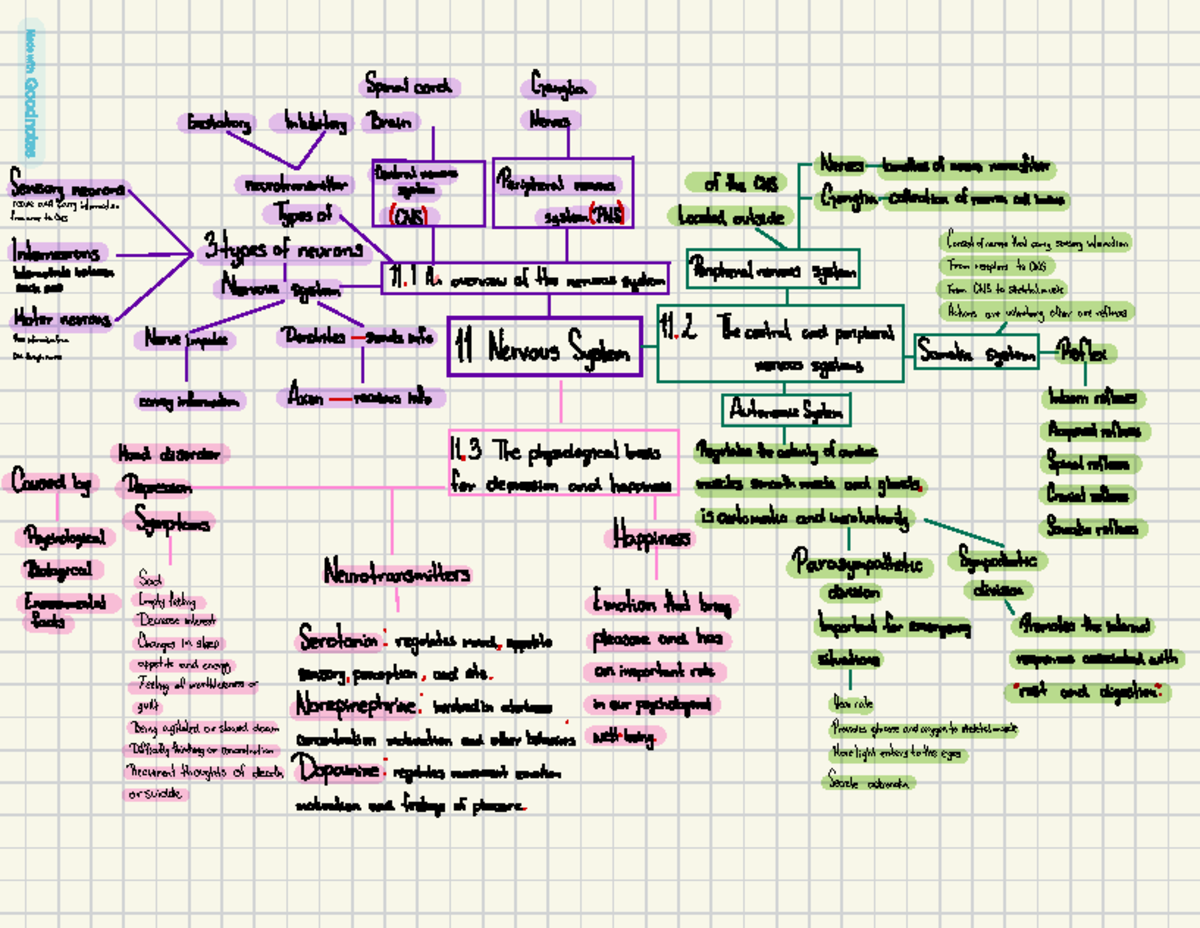 Made with Goodnotes
Spinal cord
Brain
Ganglia
Nerves
Excitatory
Inhibitory
neurotransmitter
Types of
Central nervous
system
(CNS)
Peripheral nervous
system (PNS)
Sensory neurons
Interneurons
Motor neurons
3 types of neurons
Nervous system
Nerve impulse
carray information
Dendrites — sends info
Axon — receives info
11.1 overview of the nervous system
11 Nervous System
11.2 The central and peripheral
nervous systems
of the CNS
Located outside
Peripheral nervous system
Nerves — bundles of nerve
Ganglia — collection of nerve cell bodies
From receptors to CNS
From CNS to skeletal muscle
Actions are voluntary other are reflexes
Somatic system
Reflex
Inborn reflexes
Acquired reflexes
Spinal reflexes
Cranial reflexes
Somatic reflexes
Autonomic System
Regulates the activity of cardiac
muscles smooth muscle and glands,
is automatic and involuntarity
Parasympathetic
division
Important for emergency
situations
Sympathetic
division
Promotes the internal
responses associated with
"rest and digestion"
More light enters to the eyes
11.3 The physiological basis
for depression and happiness
Mood disorder
Depression
Symptoms
Caused by
Psychological
Biological
Sad
Empty feeling
Decrease interest
Changes in sleep
appetite and energy
Feeling of worthlessness or
guilt
Being agitated or slowed down
Difficulty thinking or concentration
Recurrent thoughts of death
or suicide
Neurotransmitters
Serotonin: regulates mood, appetite
sensory, perception, and etc.
Norepinephrine: involved in alertness
concentration motivation and other behaviors
Dopamine: regulates movement emotion
motivation and feelings of pleasure.
Happiness
Emotion that bring
pleasure and has
an important role
in our psychological
well-being.